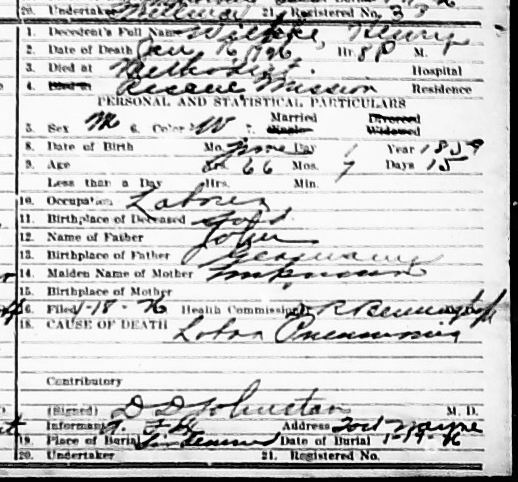 20. Undertaker 21. Registered No. 33
1. Decedent's Full Name Henry
2. Date of Death Jan 16 1926 Hr. 8 P M.
3. Died at Methodist Hospital
4. Died at Rescue Mission Residence
PERSONAL AND STATISTICAL PARTICULARS
5. Sex M 6. Color W 7. Married Single Divorced Widowed
8. Date of Birth Mo. June Day 1 Year 1859
9. Age Yrs. 66 Mos. 7 Days 15
Less than a Day Hrs. Min.
10. Occupation Laborer
11. Birthplace of Deceased
12. Name of Father John
13. Birthplace of Father Germany
14. Maiden Name of Mother Unknown
15. Birthplace of Mother
16. Filed 1-18-26 Health Commissioner
18. CAUSE OF DEATH Lobar Pneumonia
Contributory
(Signed) D D Johnston M. D.
Informant Address Fort Wayne
19. Place of Burial Date of Burial 1-19-26
20. Undertaker 21. Registered No.